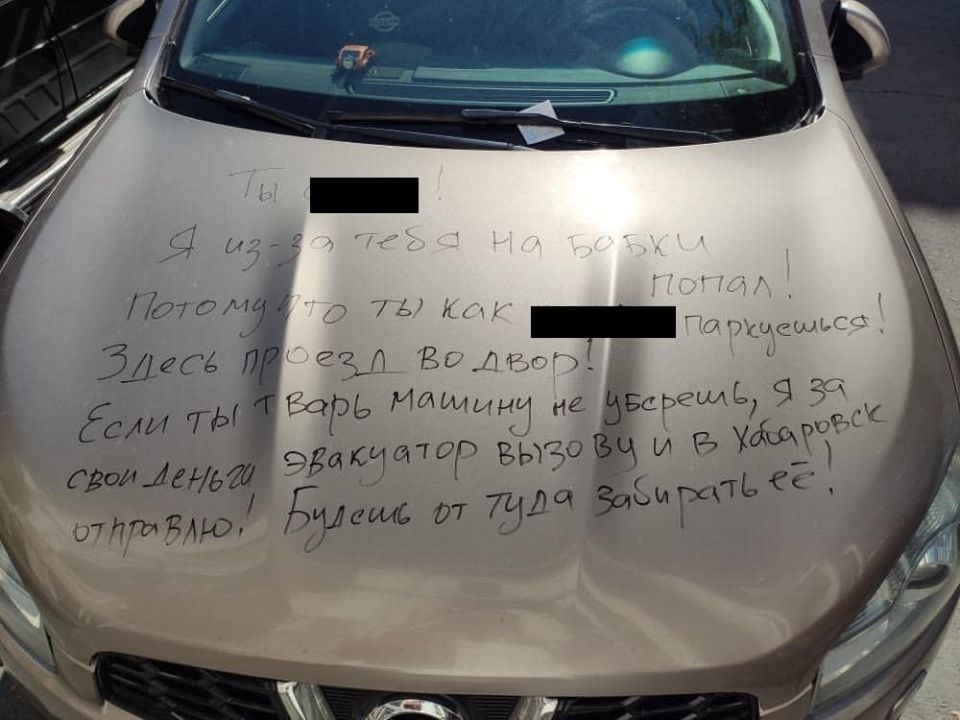 Ты !
Я из-за тебя на бабки
попал!
Потому что ты как паркуешься!
Здесь проезд во двор!
Если ты тварь машину не уберешь, я за
свои деньги эвакуатор вызову и в Хабаровск
отправлю! Будешь от туда забирать её!